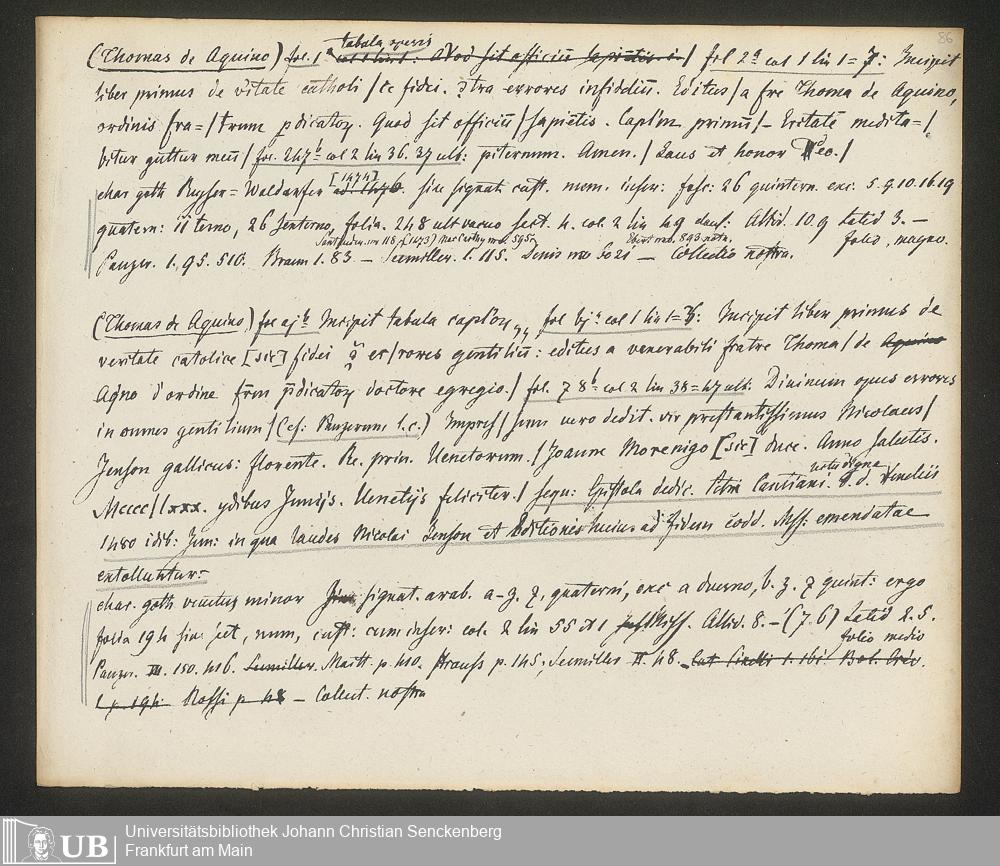 86
tabula operis
(Thomas de Aquino) fol. 1a col 1 lin 1: Quod sit officiu sapientis c./ fol 2a col 1 lin 1=7: Incipit
liber primus de vitate catholi/ce fidei. ɔtra errores infideliu. Editus/a fre Thoma de Aquino,
ordinis fra=/trum pdicatoꝝ. Quod sit officiu/sapietis. Caplm primu/_ Eritate medita=/
bitur guttur meu/ fol. 247b col 2 lin 36. 37 ult: piternum. Amen./ Laus et honor Deo./
[1474]
char goth Reyser= Waldarfer sin signat. cust. mem. inser: fasc: 26 quintern. exc: 5. 9. 10. 16. 19
quatern: 11 terno, 26 Senterno, folia. 248 ult vacuo sext. h. col. 2 lin 49 Altid. 10.9 Latid 3. —
Santander. nr 118. (1473) MacCarthy nr 595 Ebert nro. 893 nota. folio, magno.
Panzer. 1. 95. 510. Braun 1. 83. — Seemiller. 1. 115. Denis nro 5021 — Collectio nostra.
(Thomas de Aquino) fol aj b Incipit tabula capl'oꝝ fol bj a col 1 lin 1=8: Incipit liber primus de
veritate catolice [sic] fidei er/rores gentiliu: editus a venerabili fratre Thoma/de Aquino
Aq̄no d'ordine frm pdicatoꝝ doctore egregio./ fol. 78b col 2 lin 38=47 ult: Diuinum opus errores
in omnes gentilium/(cf: Panzerum l.c.) Impres/sum vero dedit. vir prestantissimus Nicolaus/
Jenson gallicus: florente. Re. prin. Uenetorum./Joanne Morenigo [sic] duce. Anno salutis.
nota digna
Mcccc/lxxx. ydibus Junijs. Uenetijs feliciter./ sequ: Epistola dedic. Petri Cantiani. q. d. Venetiis
1480 idib: Jun: in qua laudes Nicolai Jenson et Editiones huius ad fidem codd. Mss: emendatae
extolluntur:-
char. goth minor sin signat. arab. a-z. ꝛ, quaterni, exc a duerno, b. z. ꝛ quint: ergo
folia 194 sin: pet, num, cust: cum inser: col. 2 lin 55 Altid. 8. — (7.6) Latid 2. 5.
folio medio
Panzer. III. 150. 416. Seemiller. Maitt p. 410. Strauss p. 145; Seemiller II. 48. Cat Pinelli 1. 161 Bol. Crév.
1. p. 194. Rossi p. 48 — Collect. nostra
UB
Universitätsbibliothek Johann Christian Senckenberg
Frankfurt am Main